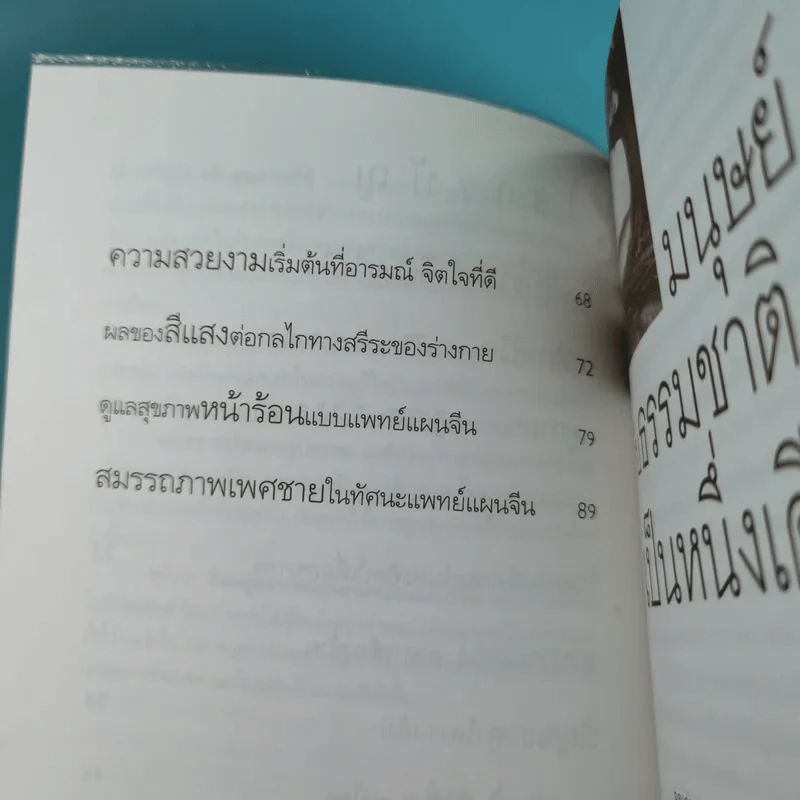 ความสวยงามเริ่มต้นที่อารมณ์ จิตใจที่ดี 68
ผลของสีแสงต่อกลไกทางสรีระของร่างกาย 72
ดูแลสุขภาพหน้าร้อนแบบแพทย์แผนจีน 79
สมรรถภาพเพศชายในทัศนะแพทย์แผนจีน 89
มนุษย์
ธรรมชาติ
เป็นหนึ่ง